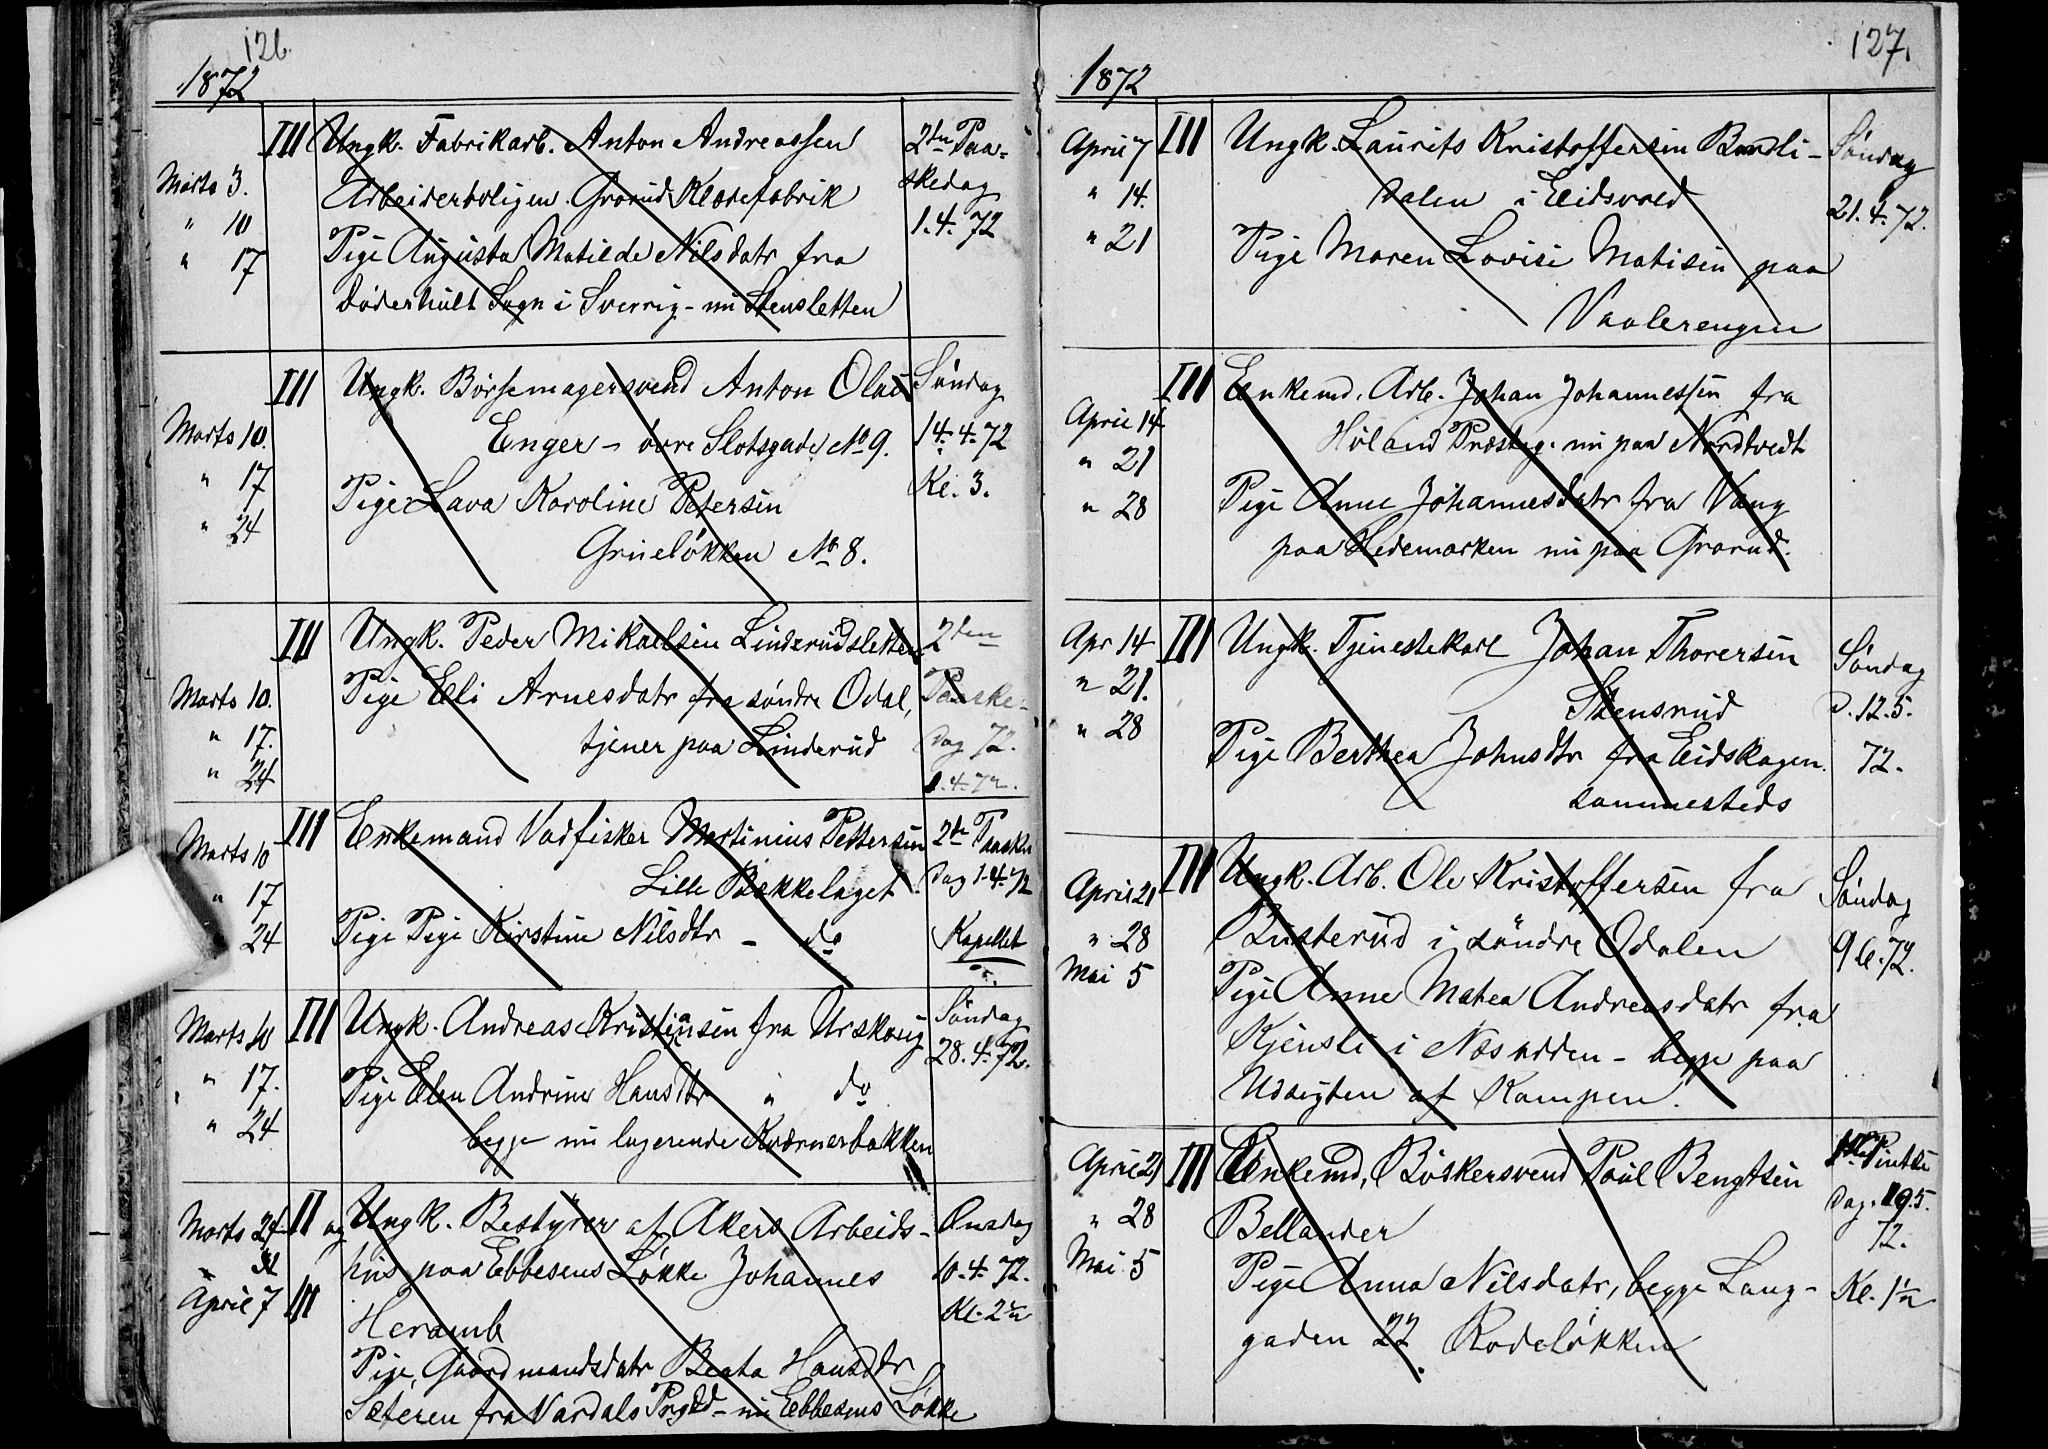 126.
1872
III Ungk. Fabrikarb. Anton Andreassen 2den Paa-
Marts 3. Arbeiderboligen. Grorud Klædefabrik skedag
" 10 Pige Augusta Matilde Nilsdatr fra 1.4.72
" 17 Døderhult Sogn i Sverrig - nu Stensletten
III Ungk. Børsemagersvend Anton Olai Søndag
Marts 10. Enger - övre Slotsgade No 9. 14.4.72
" 17 Pige Lava Karoline Petersen Kl. 3.
" 24 Grüneløkken No 8.
III Ungk. Peder Mikaelsen Linderudsletten 2den
Marts 10. Pige Eli Arnesdatr fra søndre Odal, Paaske-
" 17. tjener paa Linderud Dag 72.
" 24 1.4.72.
III Enkemand Vadfisker Martinius Pettersen 2den Paaske
Marts 10 Lille Bækkelaget Dag 1.4.72
" 17 Pige Pige Kirstine Nilsdtr - do Kapellet
24
Marts 10 III Ungk. Andreas Kristiansen fra Urskoug Søndag
" 17. Pige Elen Andrine Hansdtr " do 28.4.72.
" 24 begge nu logerende Kværnerbakken
Marts 24 II og Ungk. Bestyrer af Akers Arbeids- Onsdag
" 31 hus paa Ebbesens Løkke Johannes 10.4.72.
April 7 III Heramb Kl. 2½
Pige, Gaardmandsdatr Beata Hansdtr
Sæteren fra Vardals Prgjld - nu Ebbesens Løkke
127.
1872
April 7 III Ungk. Laurits Kristoffersen Bondli- Søndag
" 14. dalen i Eidsvold 21.4.72.
" 21 Pige Maren Lovise Matisen paa
Vaalerengen
III Enkemd. Arb. Johan Johannessen fra
April 14 Høland Præsteg. nu paa Nordtvedt
" 21 Pige Anne Johannesdatr fra Vang
" 28 paa Hedemarken nu paa Grorud.
Apr 14 III Ungk. Tjenestekarl Johan Thoresen Søndag
" 21. Stensrud d. 12.5.
" 28 Pige Berthea Johnsdtr fra Eidskogen. 72.
sammesteds
III Ungk. Arb. Ole Kristoffersen fra Søndag
April 21 Busterud i søndre Odalen 9.6.72.
" 28 Pige Anne Matea Andreasdatr fra
Mai 5 Kjensli i Næs - begge paa
Udsigten af Kampen.
April 21 III Enkemd, Bødkersvend Paul Bengtsen 1ste Pintse
" 28 Bellander Dag. 19.5.
Mai 5 Pige Anna Nilsdatr, begge Lang- 72.
gaden 22 Rodeløkken Kl. 1½